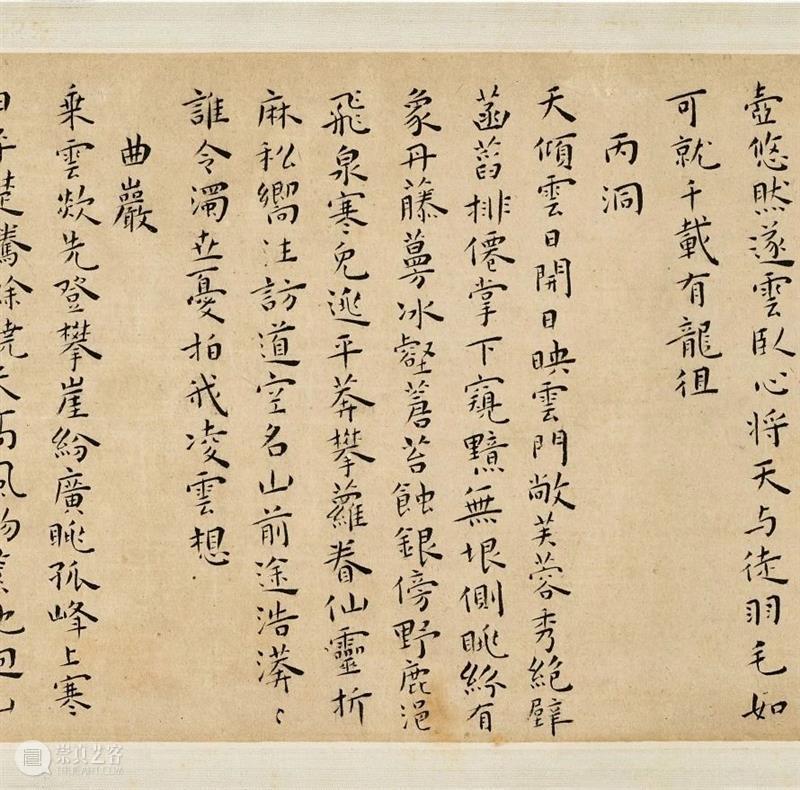 壺悠然遂雲臥心将天与徒羽毛如
可就千載有龍徂
丙洞
天傾雲日開日映雲門敞芙蓉秀絶壁
菡萏排僊掌下窺黯無垠側眺紛有
象丹藤蔓冰壑蒼苔蝕銀傍野鹿浥
飛泉寒兔逃平莽攀蘿眷仙靈折
麻私嚮往訪道空名山前途浩漭〻
誰令濁世憂拍我凌雲想
曲巖
乗雲欻先登攀崖紛廣眺孤峰上寒
崇真艺客